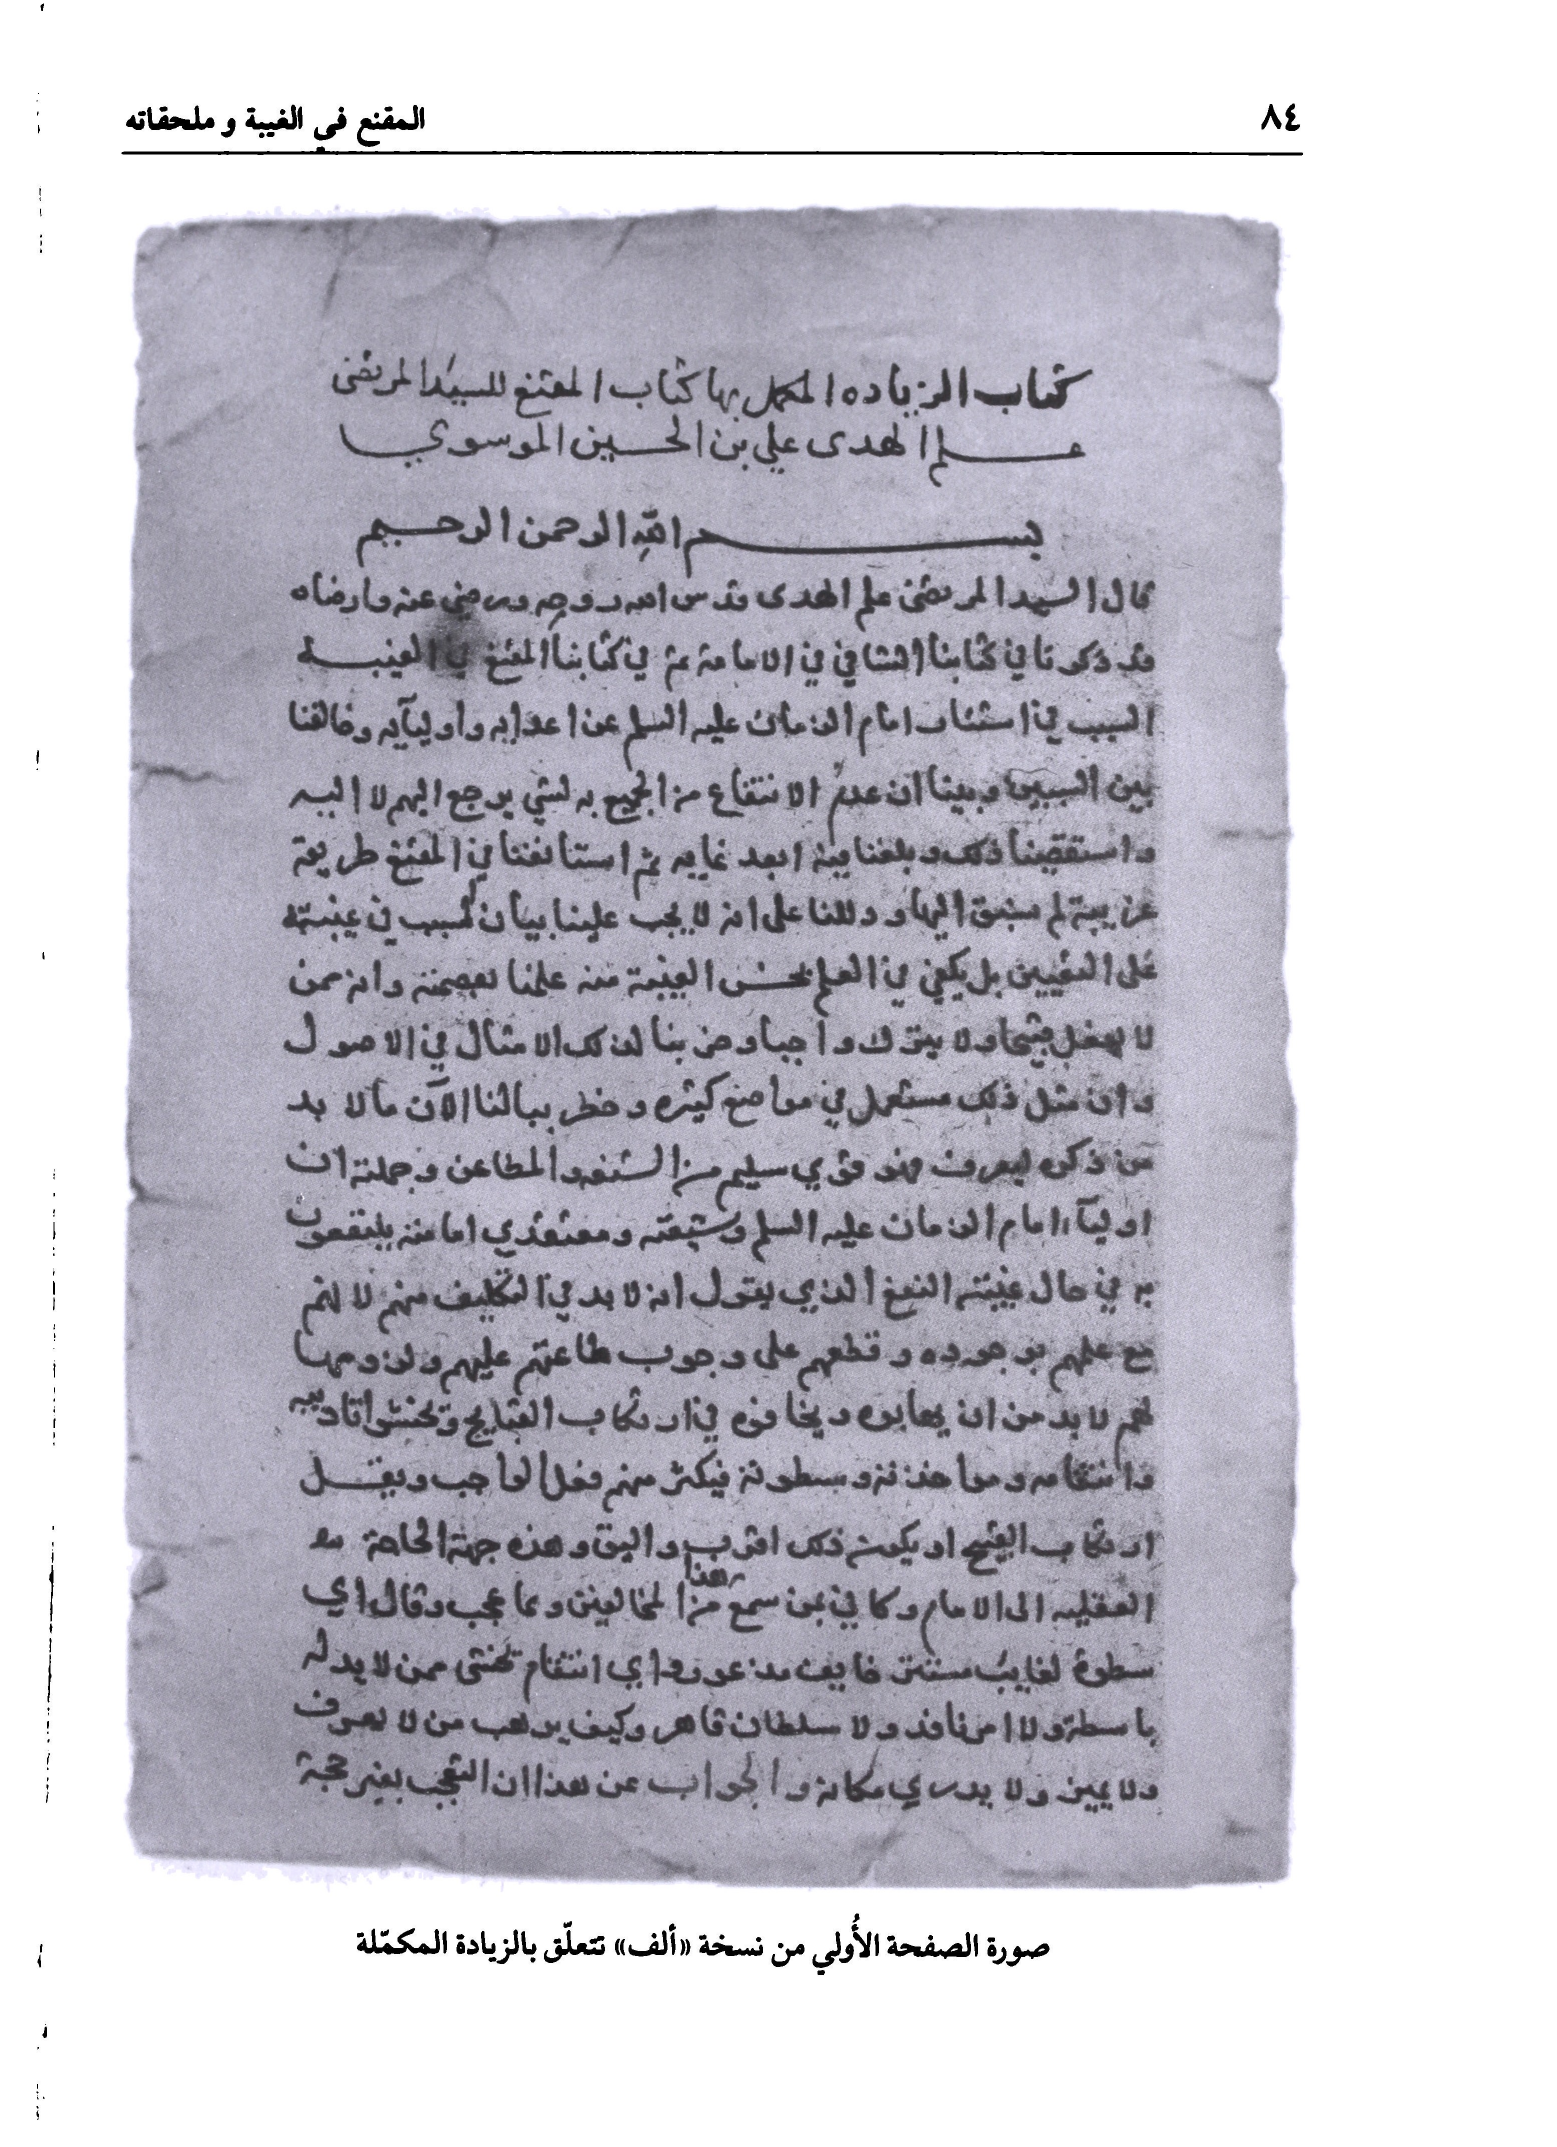 ٨٤
المقنع في الغيبة و ملحقاته
كتاب الزياده المكمل بها كتاب المقنع للسيد المرتضى
علم الهدى علي بن الحسين الموسوي
بسم الله الرحمن الرحيم
قال السيد المرتضى علم الهدى قدس الله روحه ورضي عنه وارضاه
قد ذكرنا في كتابنا الشافي في الامامة ثم في كتابنا المقنع في الغيبة
السبب في استتار امام الزمان عليه السلم عن اعدايه واوليآيه وخالفنا
بين السببين وبينا ان عدم الانتفاع من الجميع به لشي يرجع اليهم لا اليه
واستقصينا ذلك وبلغنا فيه ابعد غايه ثم استانفنا في المقنع طريقة
غريبة لم نسبق اليها ودللنا على انه لا يجب علينا بيان السبب في غيبته
على التعيين بل يكفي في العلم بحسن الغيبة منه علمنا بعصمته وانه ممن
لا يفعل قبيحا ولا يترك واجبا وضربنا لذلك الامثال في الاصول
وان مثل ذلك مستعمل في مواضع كثيره وخطر ببالنا الآن ما لا بد
من ذكره ليعرف فهو قوي سليم من الشبه والمطاعن وجملته ان
اوليآء امام الزمان عليه السلم وشيعته ومعتقدي امامته ينتفعون
به في حال غيبته النفع الذي نقول انه لا بد في التكليف منه لانهم
مع علمهم بوجوده وقطعهم على وجوب طاعته عليهم ولزومها
لهم لا بد من ان يهابوه ويخافوه في ارتكاب القبايح ويخشوا تاديبه
وانتقامه ومواخذته وسطوته فيكثر منهم فعل الواجب ويقل
ارتكاب القبيح او يكون ذلك اقرب واليق وهذه جهة الحاجة
العقليه الى الامام وكاني بمن سمع هذا من المخالفين ربما عجب وقال اي
سطوة لغايب مستتر خايف مذعور واي انتقام يخشى ممن لا يد له
باسطة ولا امر نافذ ولا سلطان قاهر وكيف يرهب من لا يعرف
ولا يميز ولا يدرى مكانه والجواب عن هذا ان التعجب بغير حجة
صورة الصفحة الأُولي من نسخة «ألف» تتعلّق بالزيادة المكمّلة